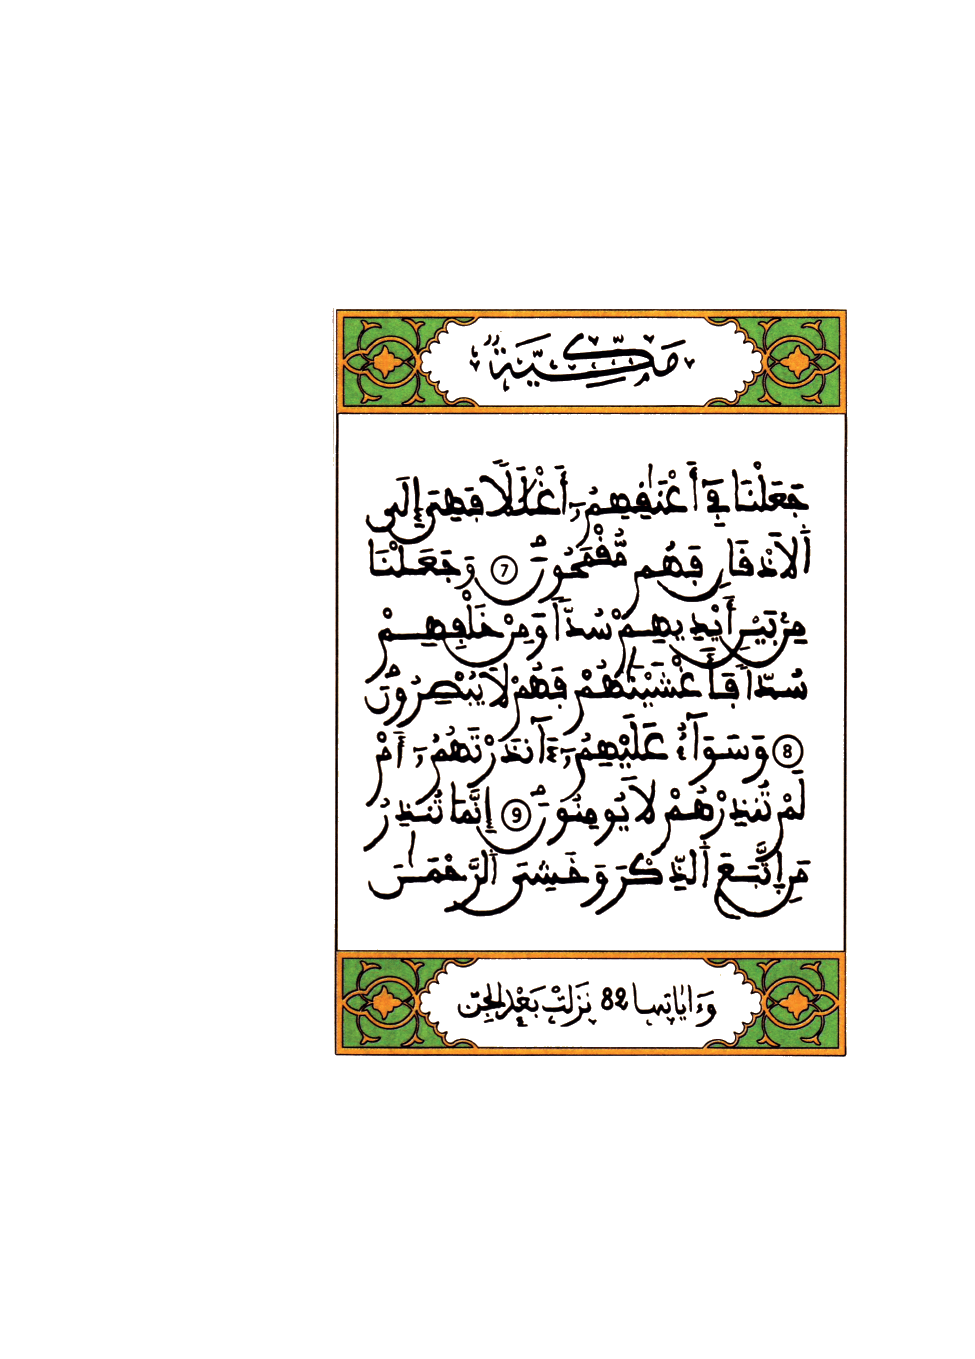 مَكِّيَّةٌ
جَعَلْنَا فِےٓ أَعْنَٰقِهِمُۥٓ أَغْلَٰلاٗ فَهِيَ إِلَى
اَ۬لَاذْقَانِ فَهُم مُّقْمَحُونَۖ 7 وَجَعَلْنَا
مِنۢ بَيْنِ أَيْدِيهِمْ سُدّاٗ وَمِنْ خَلْفِهِمْ
سُدّاٗ فَأَغْشَيْنَٰهُمْ فَهُمْ لَا يُبْصِرُونَۖ
8 وَسَوَآءٌ عَلَيْهِمُۥٓ ءَآنذَرْتَهُمُۥٓ أَمْ
لَمْ تُنذِرْهُمْ لَا يُومِنُونَۖ 9 إِنَّمَا تُنذِرُ
مَنِ اِ۪تَّبَعَ اَ۬لذِّكْرَ وَخَشِيَ اَ۬لرَّحْمَٰنَ
وَءَايَاتهَا 82 نَزَلَتْ بَعْدَ الجِنّ